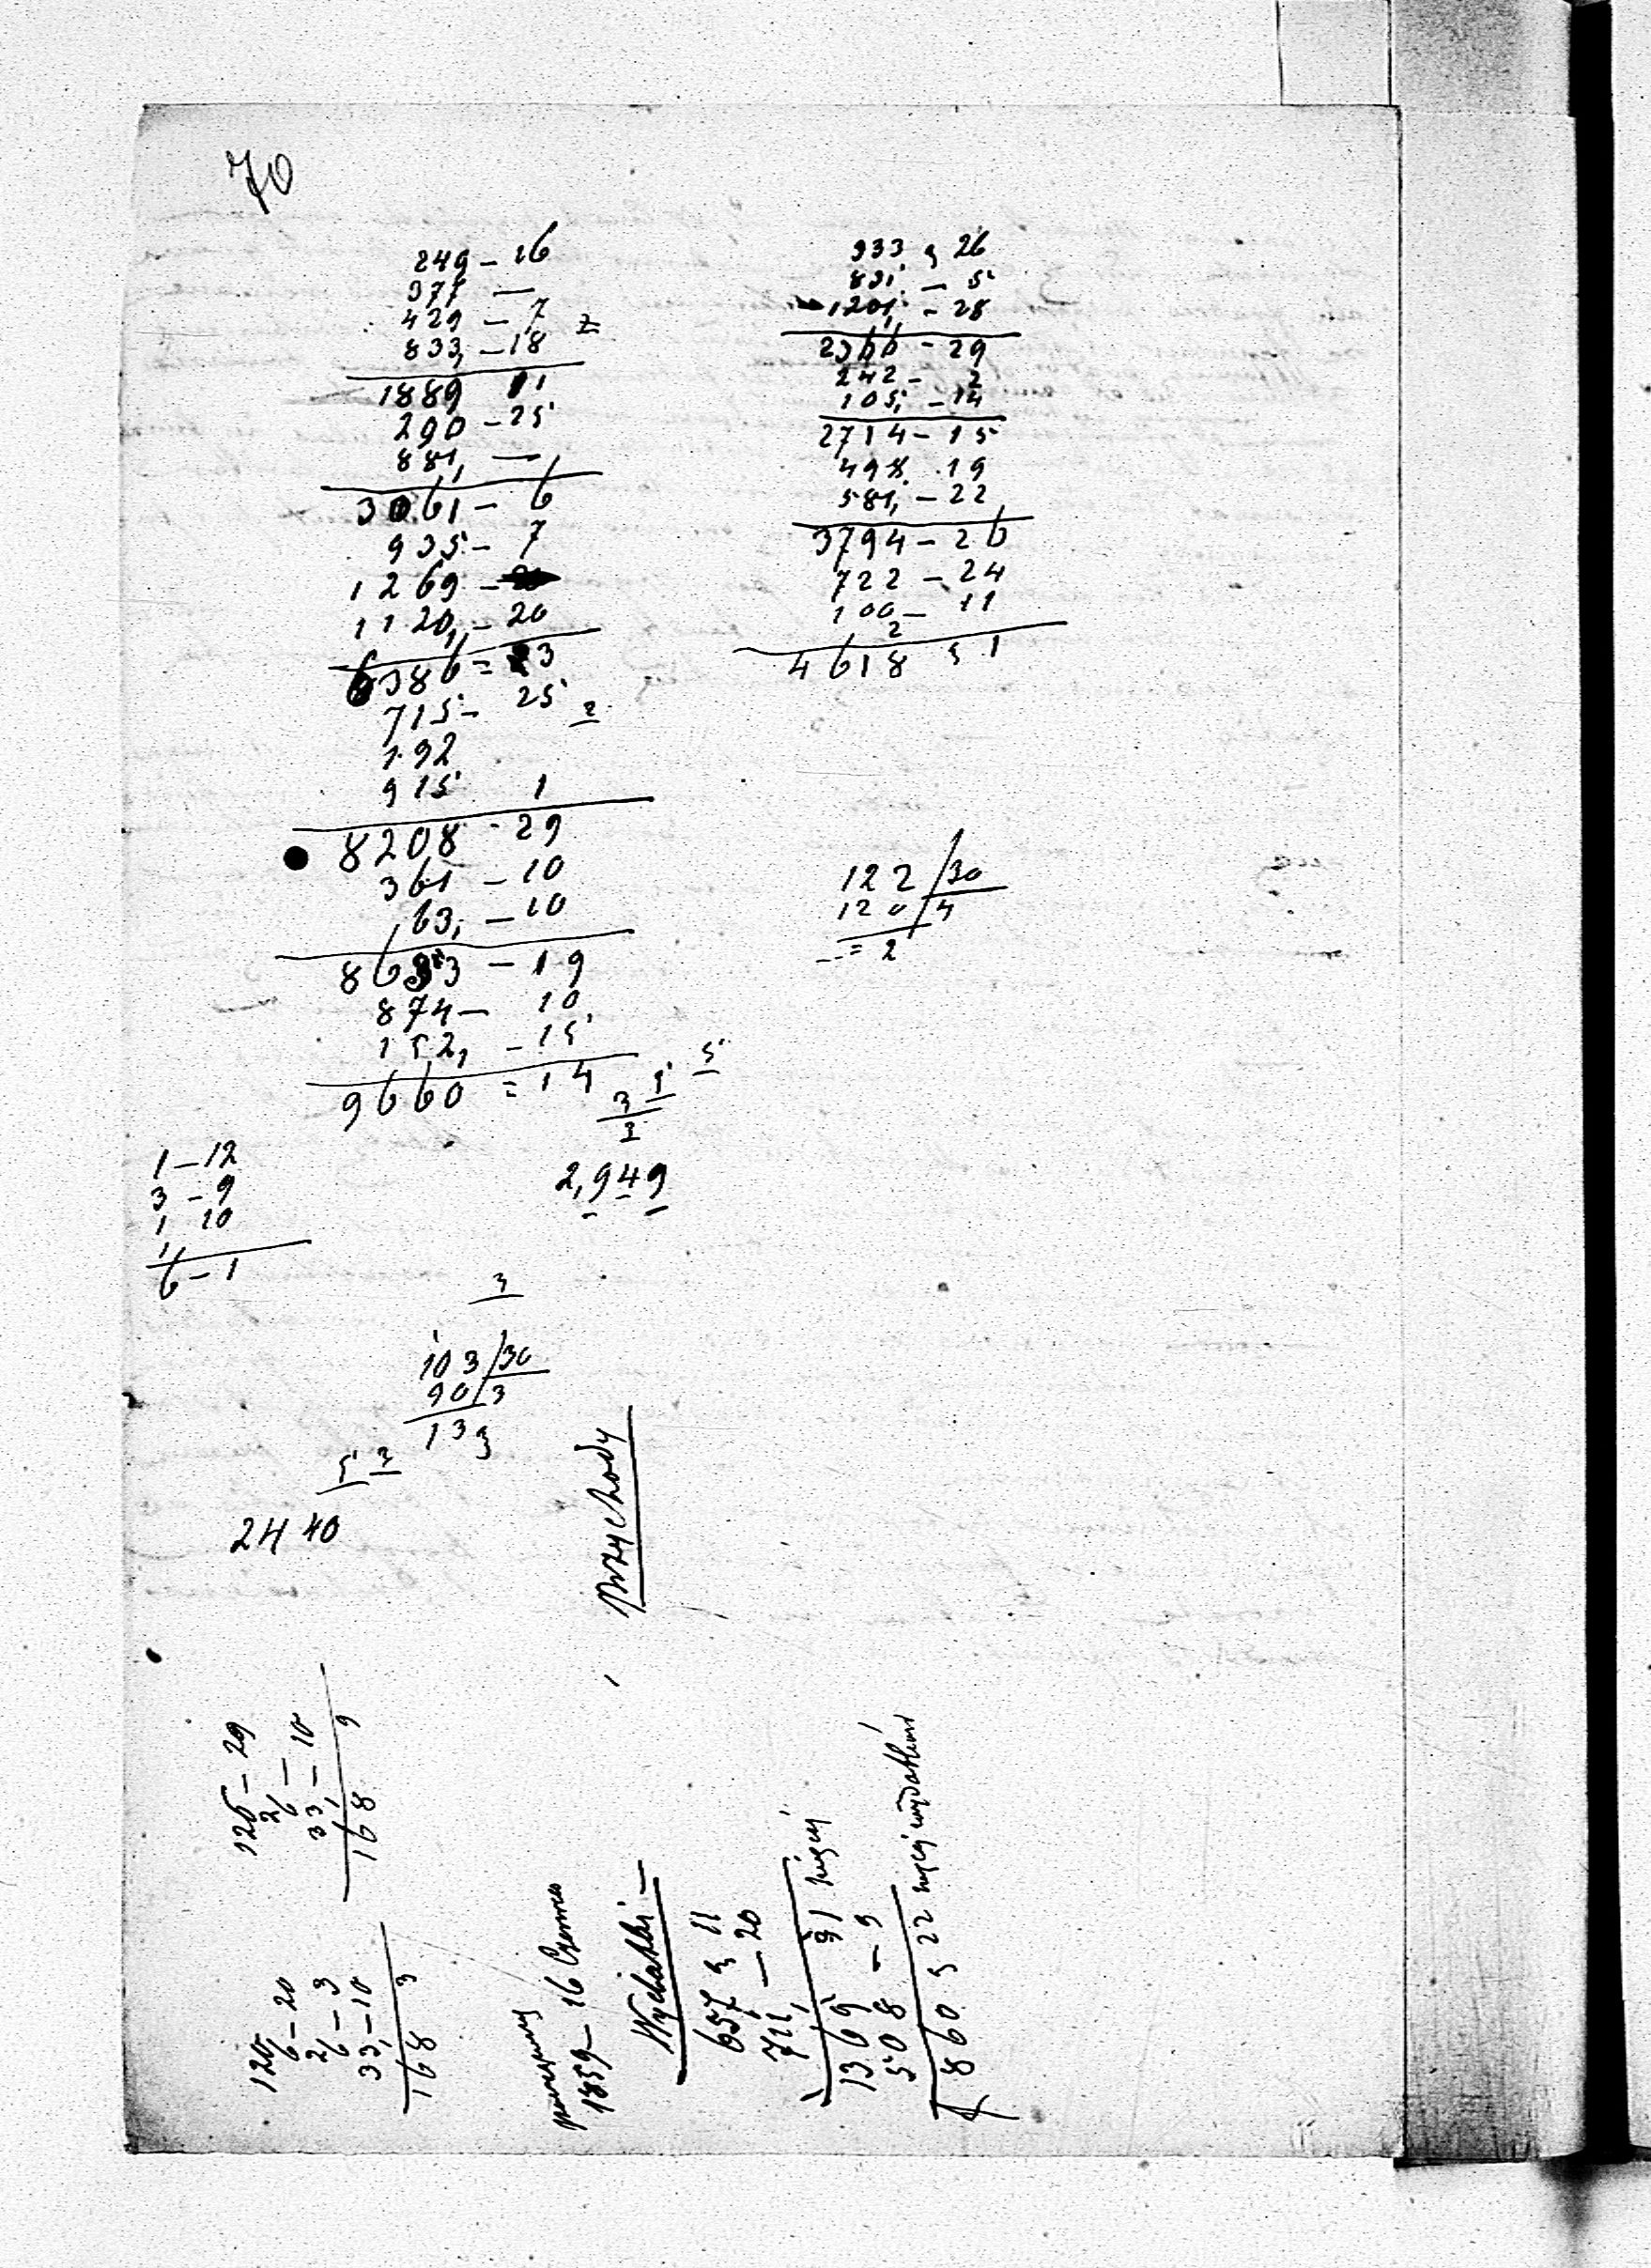 70
249 – 26
377 —
429 – 7
833, – 18
1889 11
290 – 25
881, —
3061 – 6
935 – 7
1269 –
1120, – 20
6386 = 3
715 – 25
192
915 1
8208 - 29
361 – 10
63, – 10
8633 – 19
874 – 10
152, – 15
9660 = 14
2,949
1 – 12
3 – 9
1 10
6 – 1
3
103/30
90/3
133
5 3
2440
933 26
831 – 5
1201 – 28
2966 – 29
242 – 2
105, – 14
2714 – 15
498 19
581, – 22
3794 – 26
722 – 24
100 – 11
2
4618 1
122/30
120/4
= 2
Przychody
126 – 29
33, – 10
168 9
120
6 – 20
2
6 – 3
33, – 10
168 3
1859 – 16 Czerwca
Wydatki –
657 11
711, – 20
1369 1
508 – 9
860 22